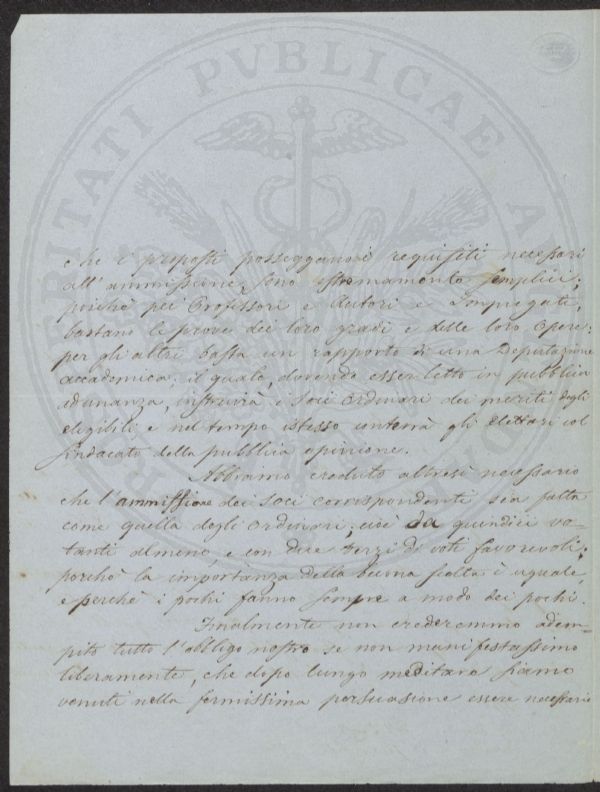 PROSPERITATI PVBLICAE AVGENDAE
che i proposti posseggano i requisiti necessari
all'ammissione, sono estremamente semplici;
poichè pei Professori e Autori e Impiegati,
bastano le prove dei loro gradi e delle loro opere:
per gli altri basta un rapporto di una Deputazione
accademica; il quale, dovendo esser letto in pubblica
adunanza, instruirà i Soci Ordinari dei meriti degli
elegibili e nel tempo istesso conterrà gli elettori col
sindacato della pubblica opinione.
Abbiamo creduto altresì necessario
che l'ammissione dei Soci corrispondenti sia fatta
come quella degli Ordinari; cioè da quindici vo-
tanti almeno, e con due terzi di voti favorevoli;
perchè la importanza della buona scelta è uguale,
e perchè i pochi fanno sempre a modo dei pochi.
Finalmente non crederemmo adem-
pito tutto l'obbligo nostro se non manifestassimo
liberamente, che dopo lungo meditare siamo
venuti nella fermissima persuasione essere necessario